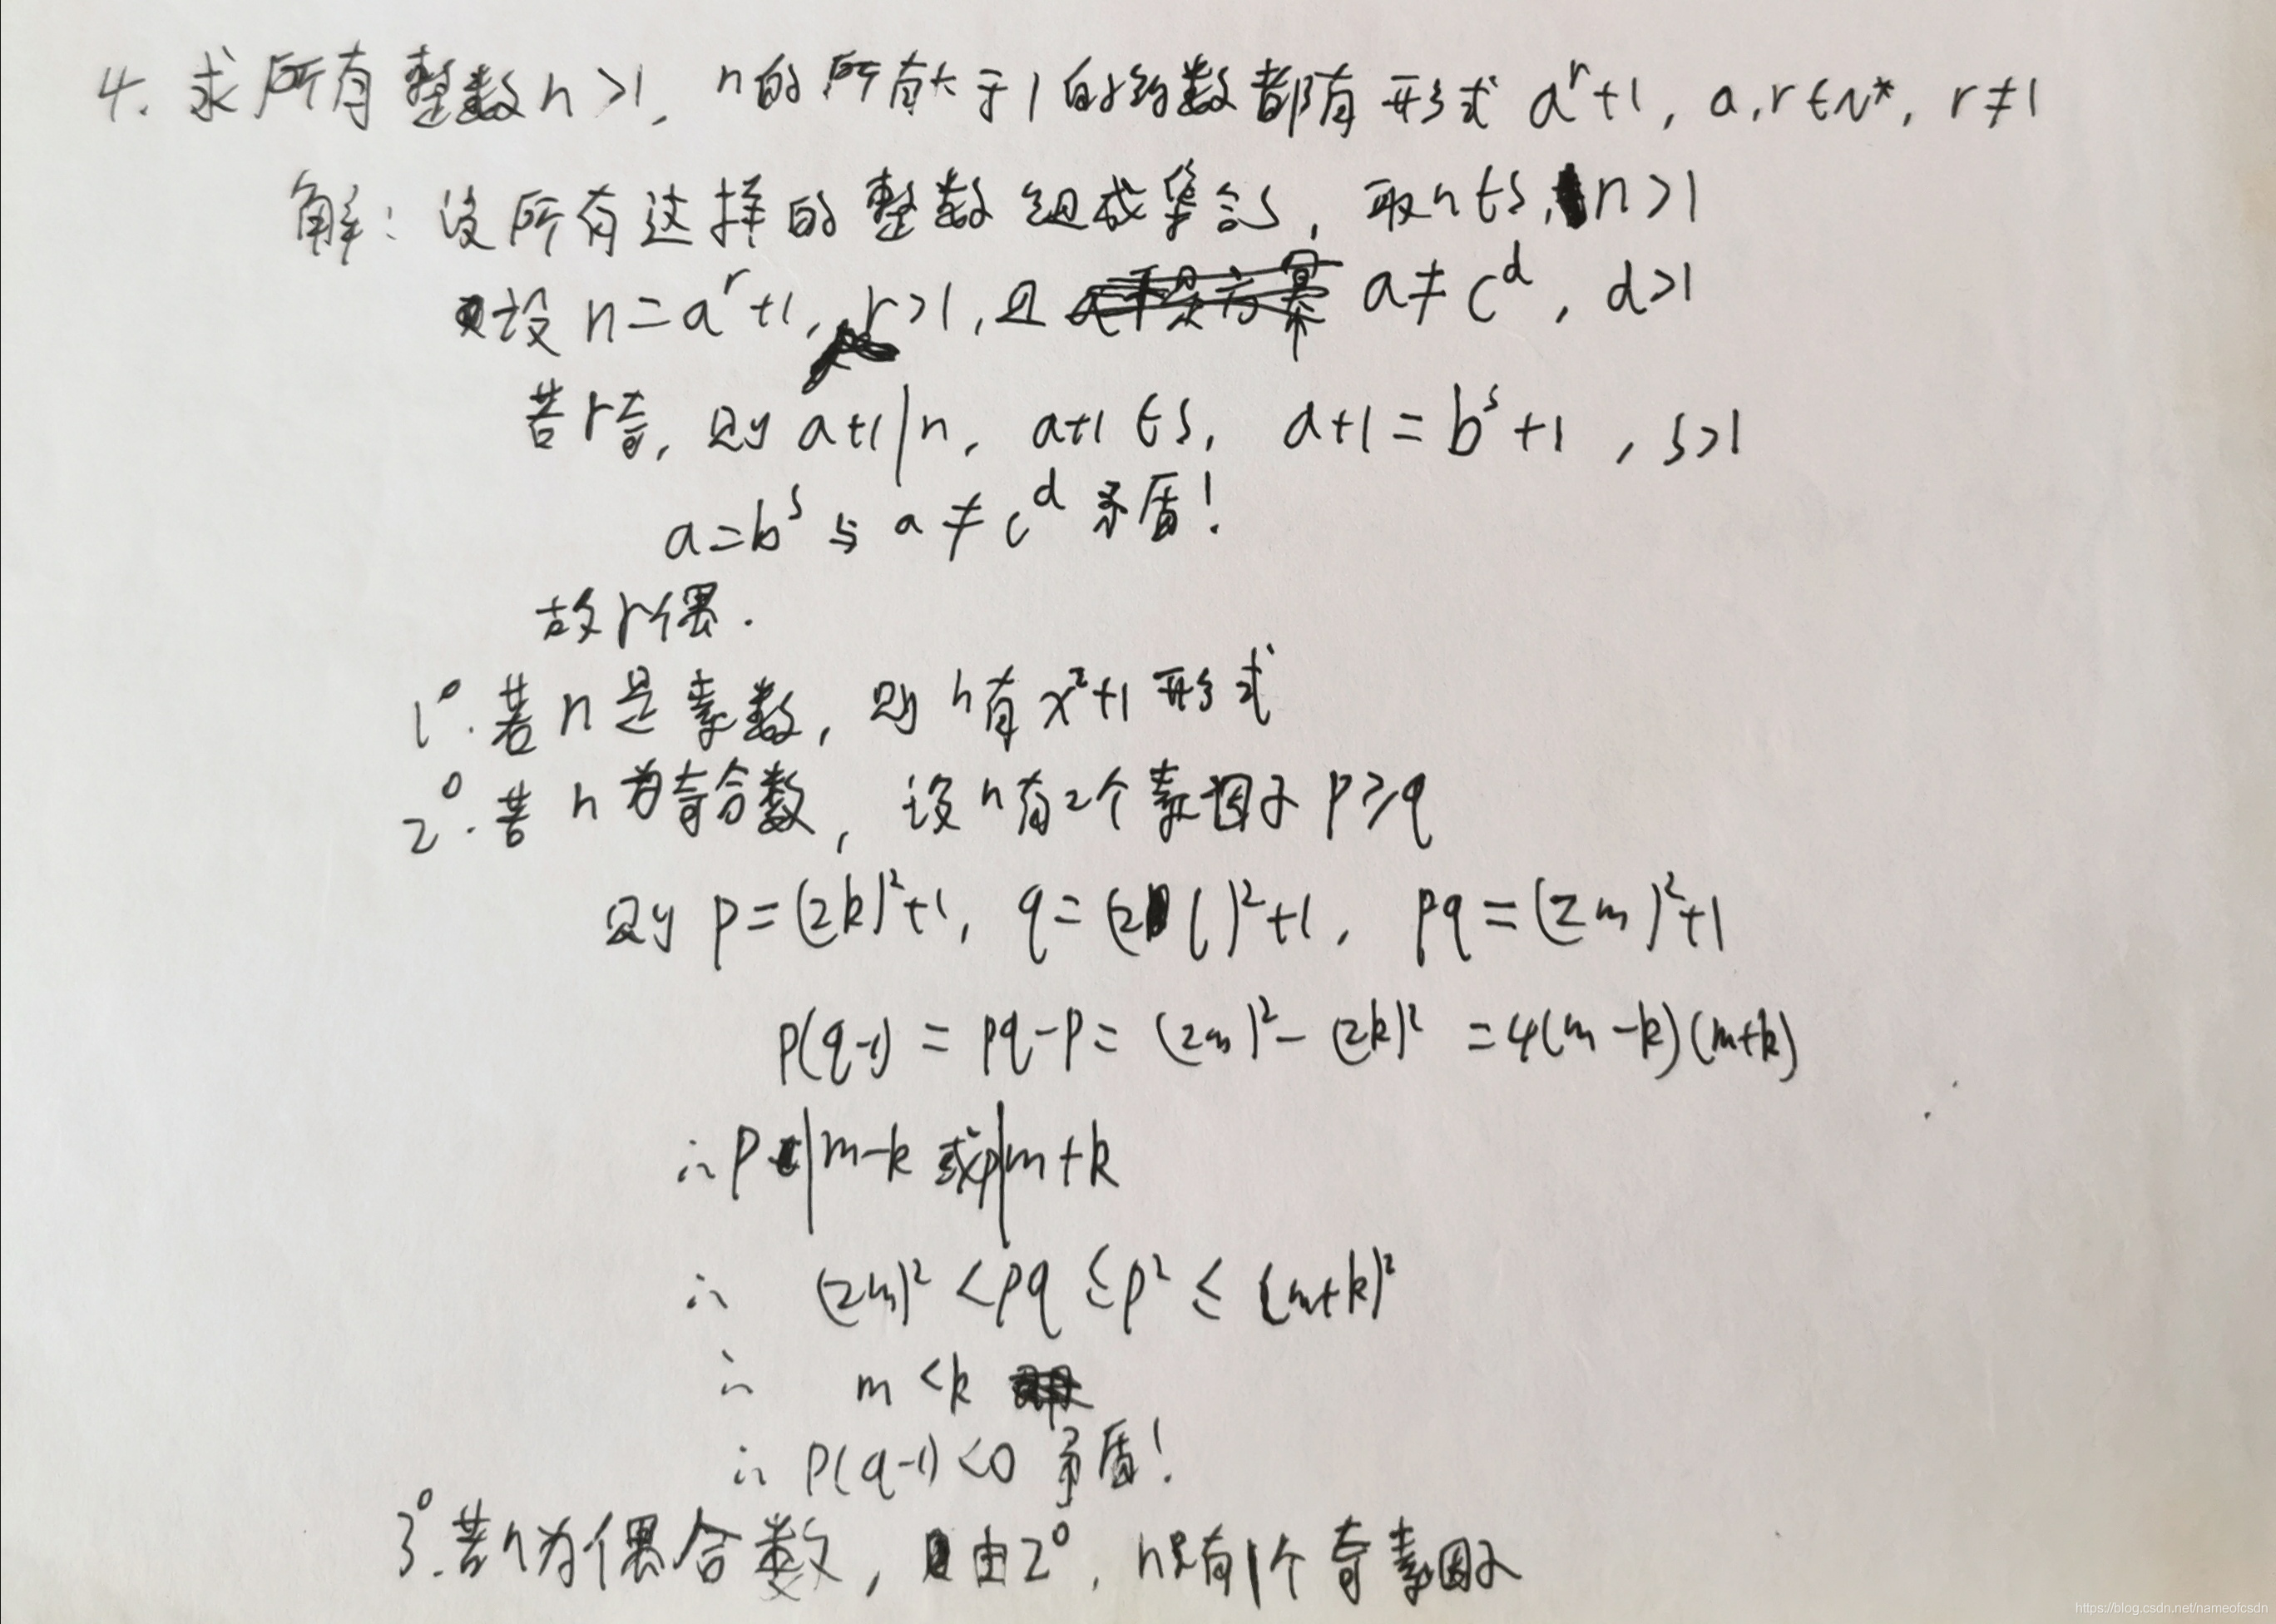 4. 求所有整数n>1, n的所有大于1的约数都有形式 a^r+1, a,r∈N*, r≠1
解: 设所有这样的整数组成集合S, 取n∈S, n>1
设 n=a^r+1, r>1, 且 a≠c^d, d>1
若r奇, 则 a+1|n, a+1∈S, a+1=b^s+1, s>1
a=b^s 与 a≠c^d 矛盾!
故r偶.
1°. 若n是素数, 则n有x²+1形式
2°. 若n为奇合数, 设n有2个素因子 p≥q
则 p=(2k)²+1, q=(2l)²+1, pq=(2m)²+1
p(q-1) = pq-p = (2m)²-(2k)² =4(m-k)(m+k)
∴ p|m-k 或p|m+k
∴ (2m)² <pq ≤p² ≤ (m+k)²
∴ m<k
∴ p(q-1)<0 矛盾!
3°. 若n为偶合数, 由2°, n只有1个奇素因子
https://blog.csdn.net/nameofcsdn